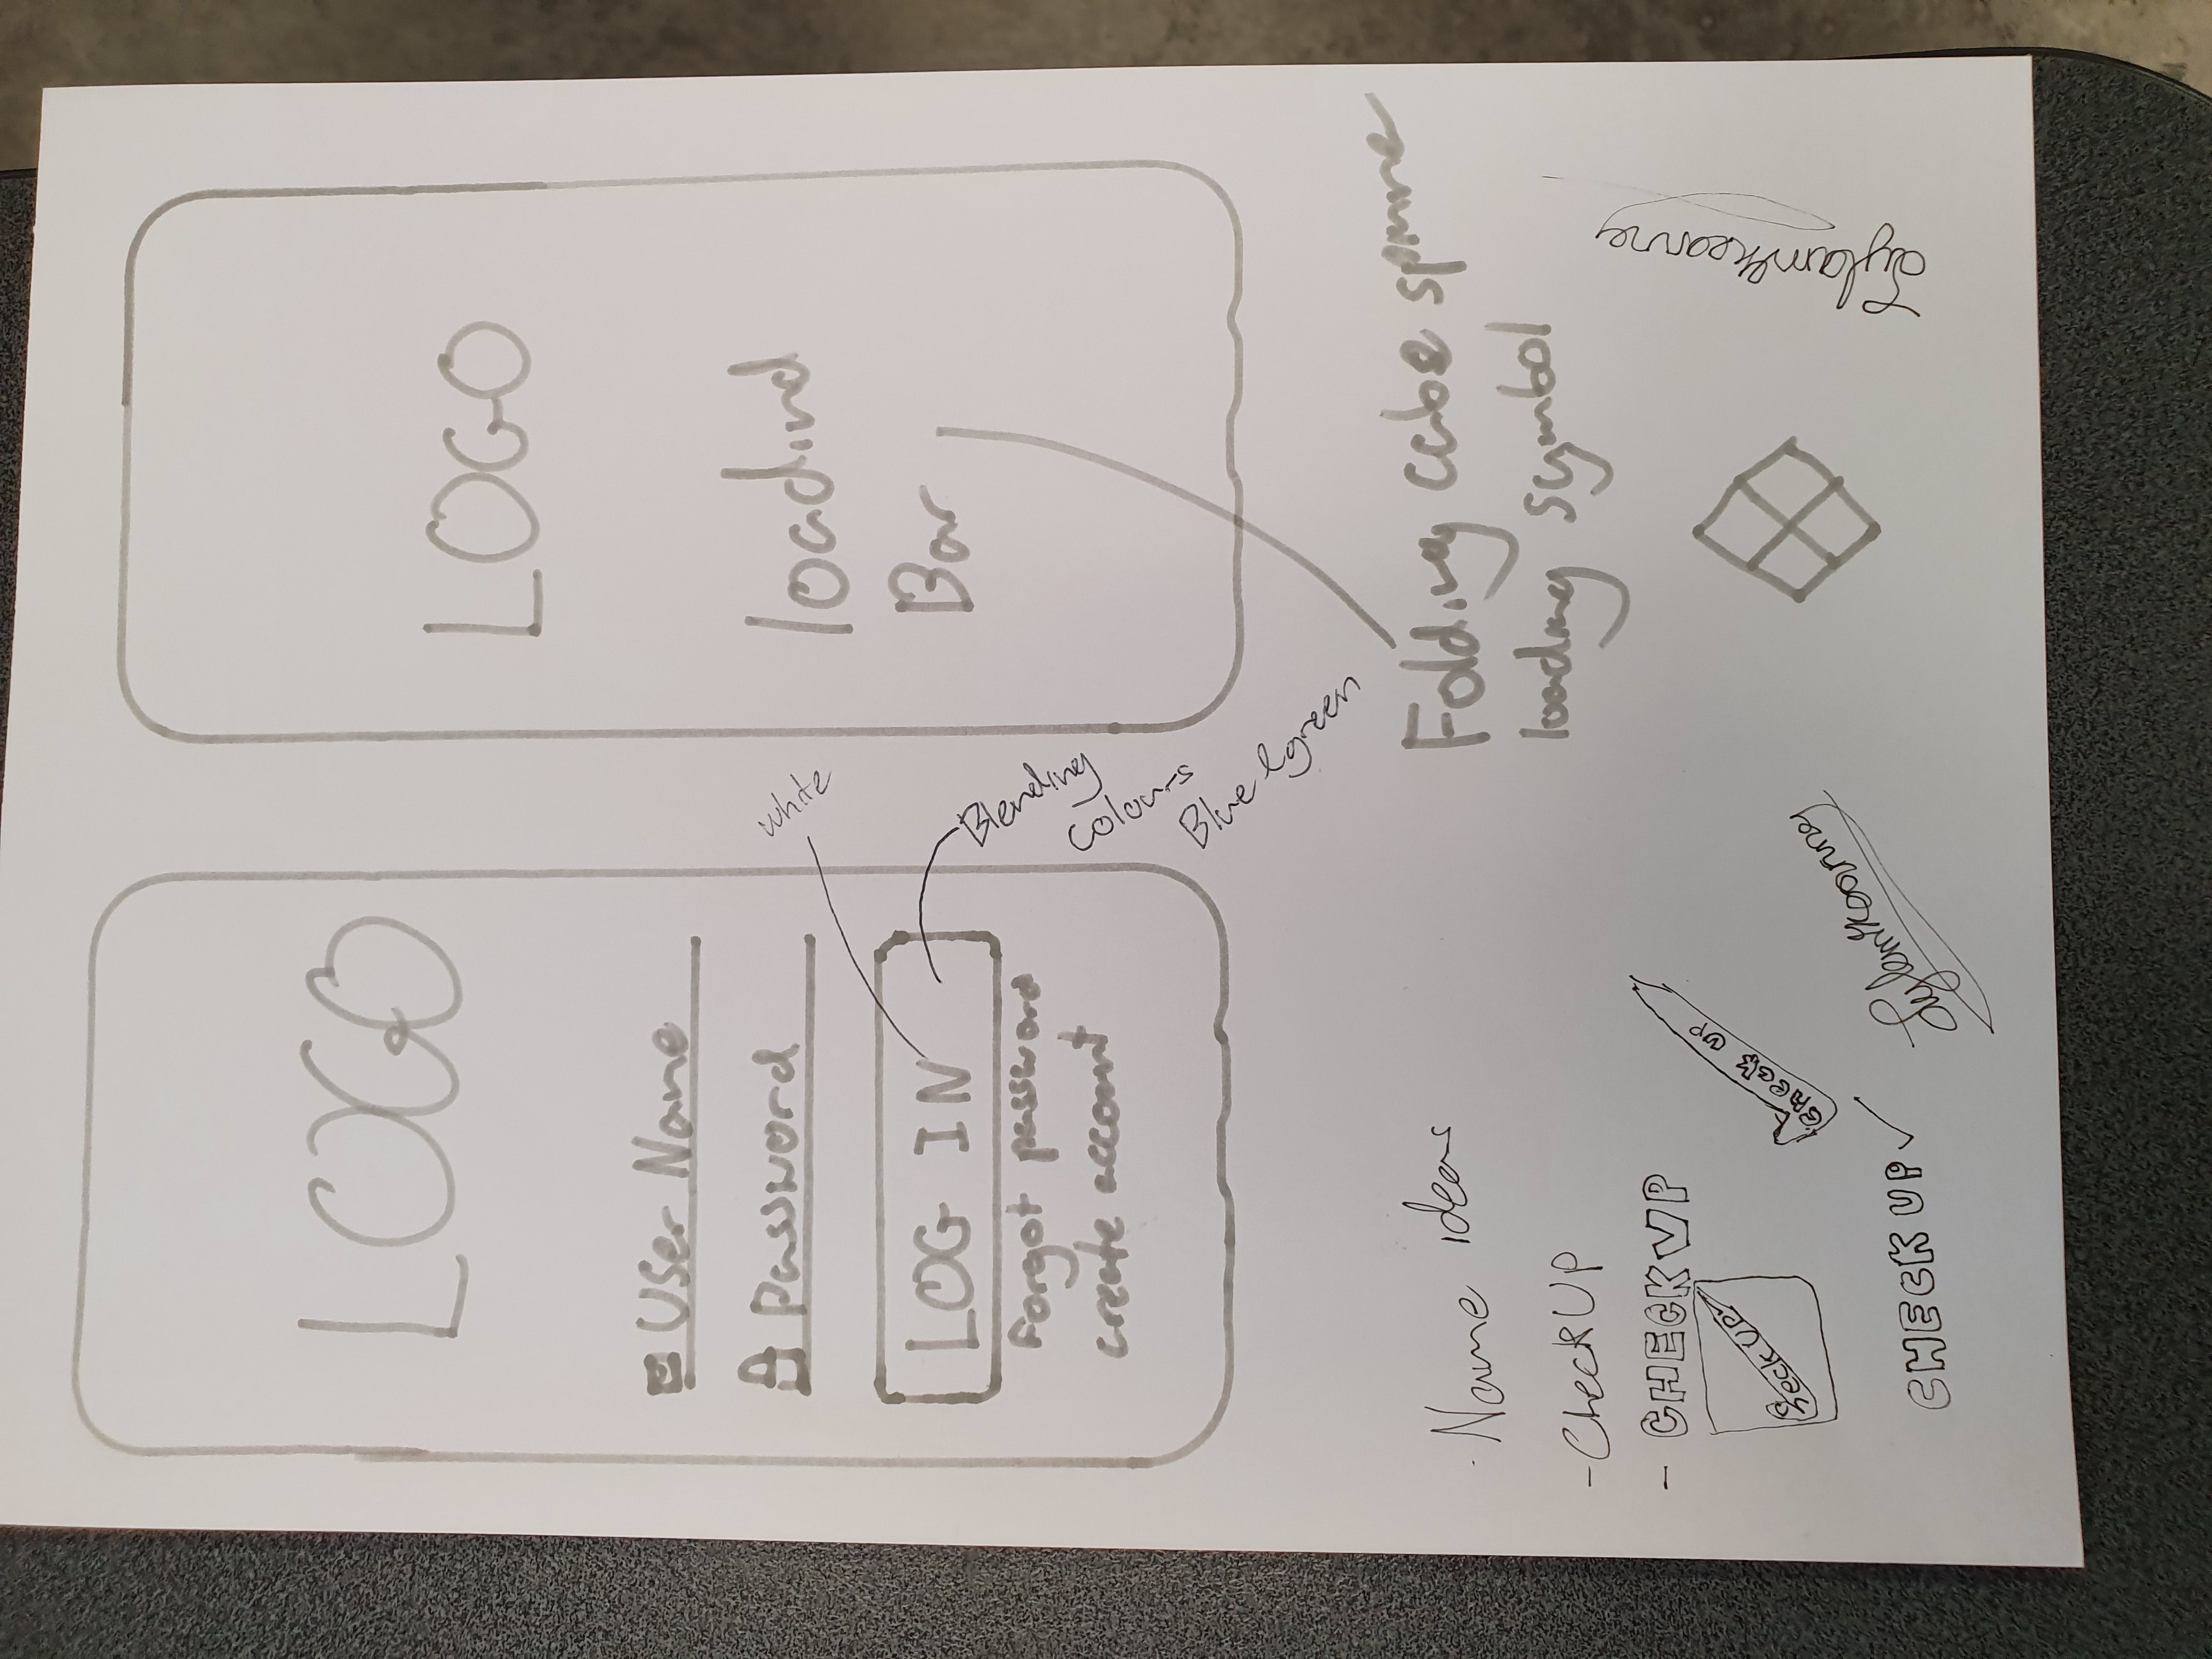 LOGO
User Name
Password
LOG IN
Forgot password
create account
white
Blending
Colours
Blue green
LOGO
loadind
Bar
Folding cube spinne
loading symbol
Name ideas
- Check UP
- CHECKUP
heck UP
CHECK UP
CHECK UP ✓